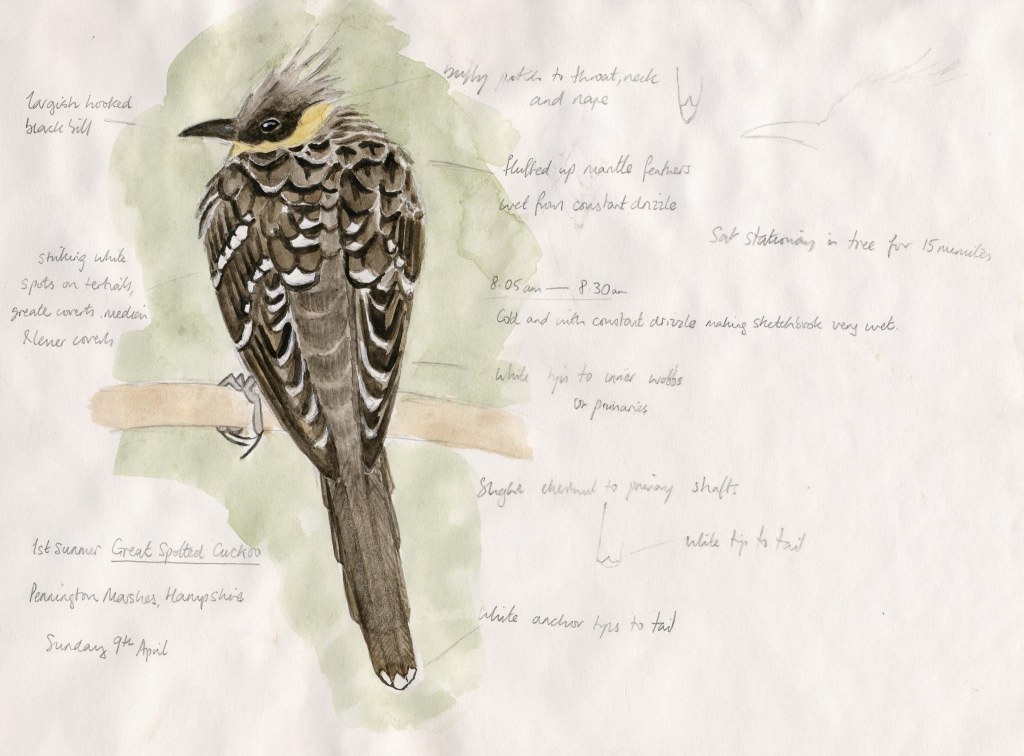 largish hooked
black bill
buffy patch to throat, neck
and nape
fluffed up mantle feathers
wet from constant drizzle
Sat stationary in tree for 15 minutes
striking white
spots on tertials,
greate coverts, median
& lesser coverts
8.05am — 8.30am
Cold and with constant drizzle making sketchbook very wet.
White tips to inner webbs
on primaries
Slight chestnut to primary shafts
White tip to tail
1st Summer Great Spotted Cuckoo
Pennington Marshes, Hampshire
Sunday 9th April
White anchor tips to tail